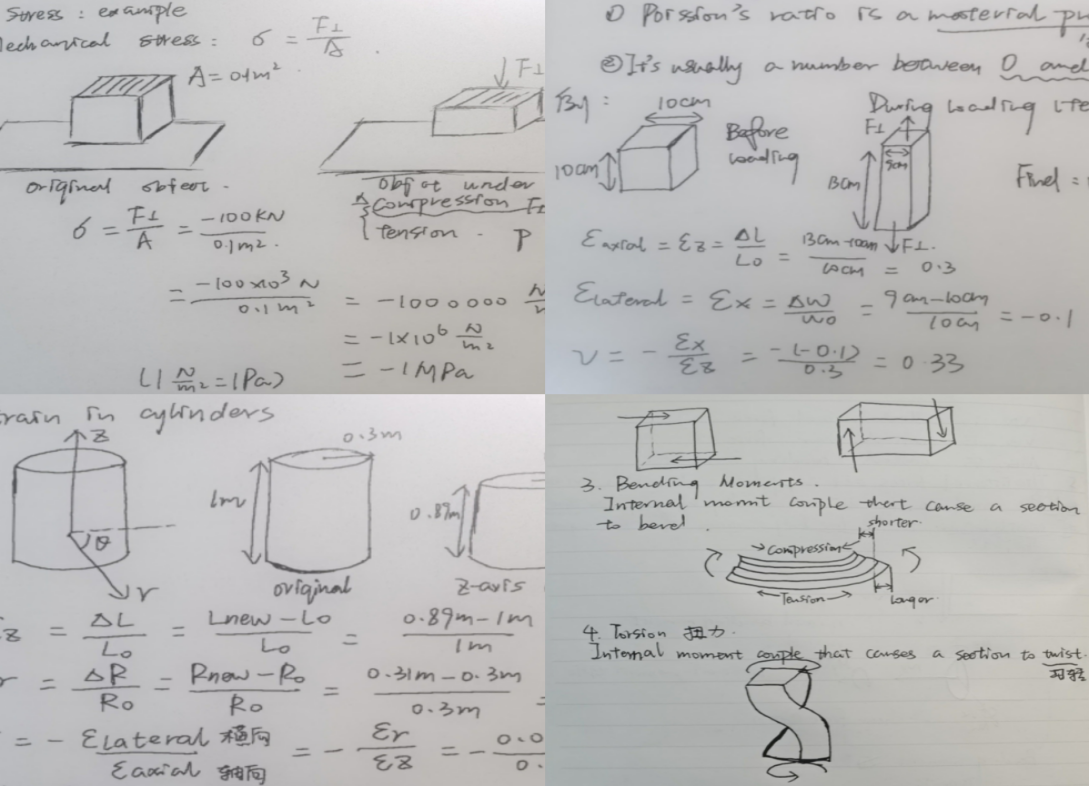 Stress: example
Mechanical stress: σ = F⊥/A.
A=0.1m²
F⊥
original object.
Object under
compression F⊥
tension. P
σ = F⊥/A = -100KN/0.1m².
= -100×10³ N/0.1m² = -1000000 N/m²
= -1×10⁶ N/m²
(1 N/m² = 1Pa) = -1MPa
① Poission's ratio is a material
② It's usually a number between 0 and
10cm
10cm
Before
loading
During loading
F⊥
9cm
13cm
F⊥.
Find =
εaxial = εz = ΔL/L₀ = 13cm-10cm/10cm = 0.3
εlateral = εx = ΔW/W₀ = 9cm-10cm/10cm = -0.1
ν = - εx/εz = -(-0.1)/0.3 = 0.33
rain in cylinders
z
θ
r
0.3m
1m
original
0.89m
z-axis
z = ΔL/L₀ = Lnew-L₀/L₀ = 0.89m-1m/1m
r = ΔR/R₀ = Rnew-R₀/R₀ = 0.31m-0.3m/0.3m =
= - εlateral 横向/εaxial 轴向 = - εr/εz = -0.0/0.
3. Bending Moments.
Internal momnt couple thert cause a section
to bend.
shorter
Compression
Tension
longer
4. Torsion 扭力.
Internal moment couple that causes a section to twist.